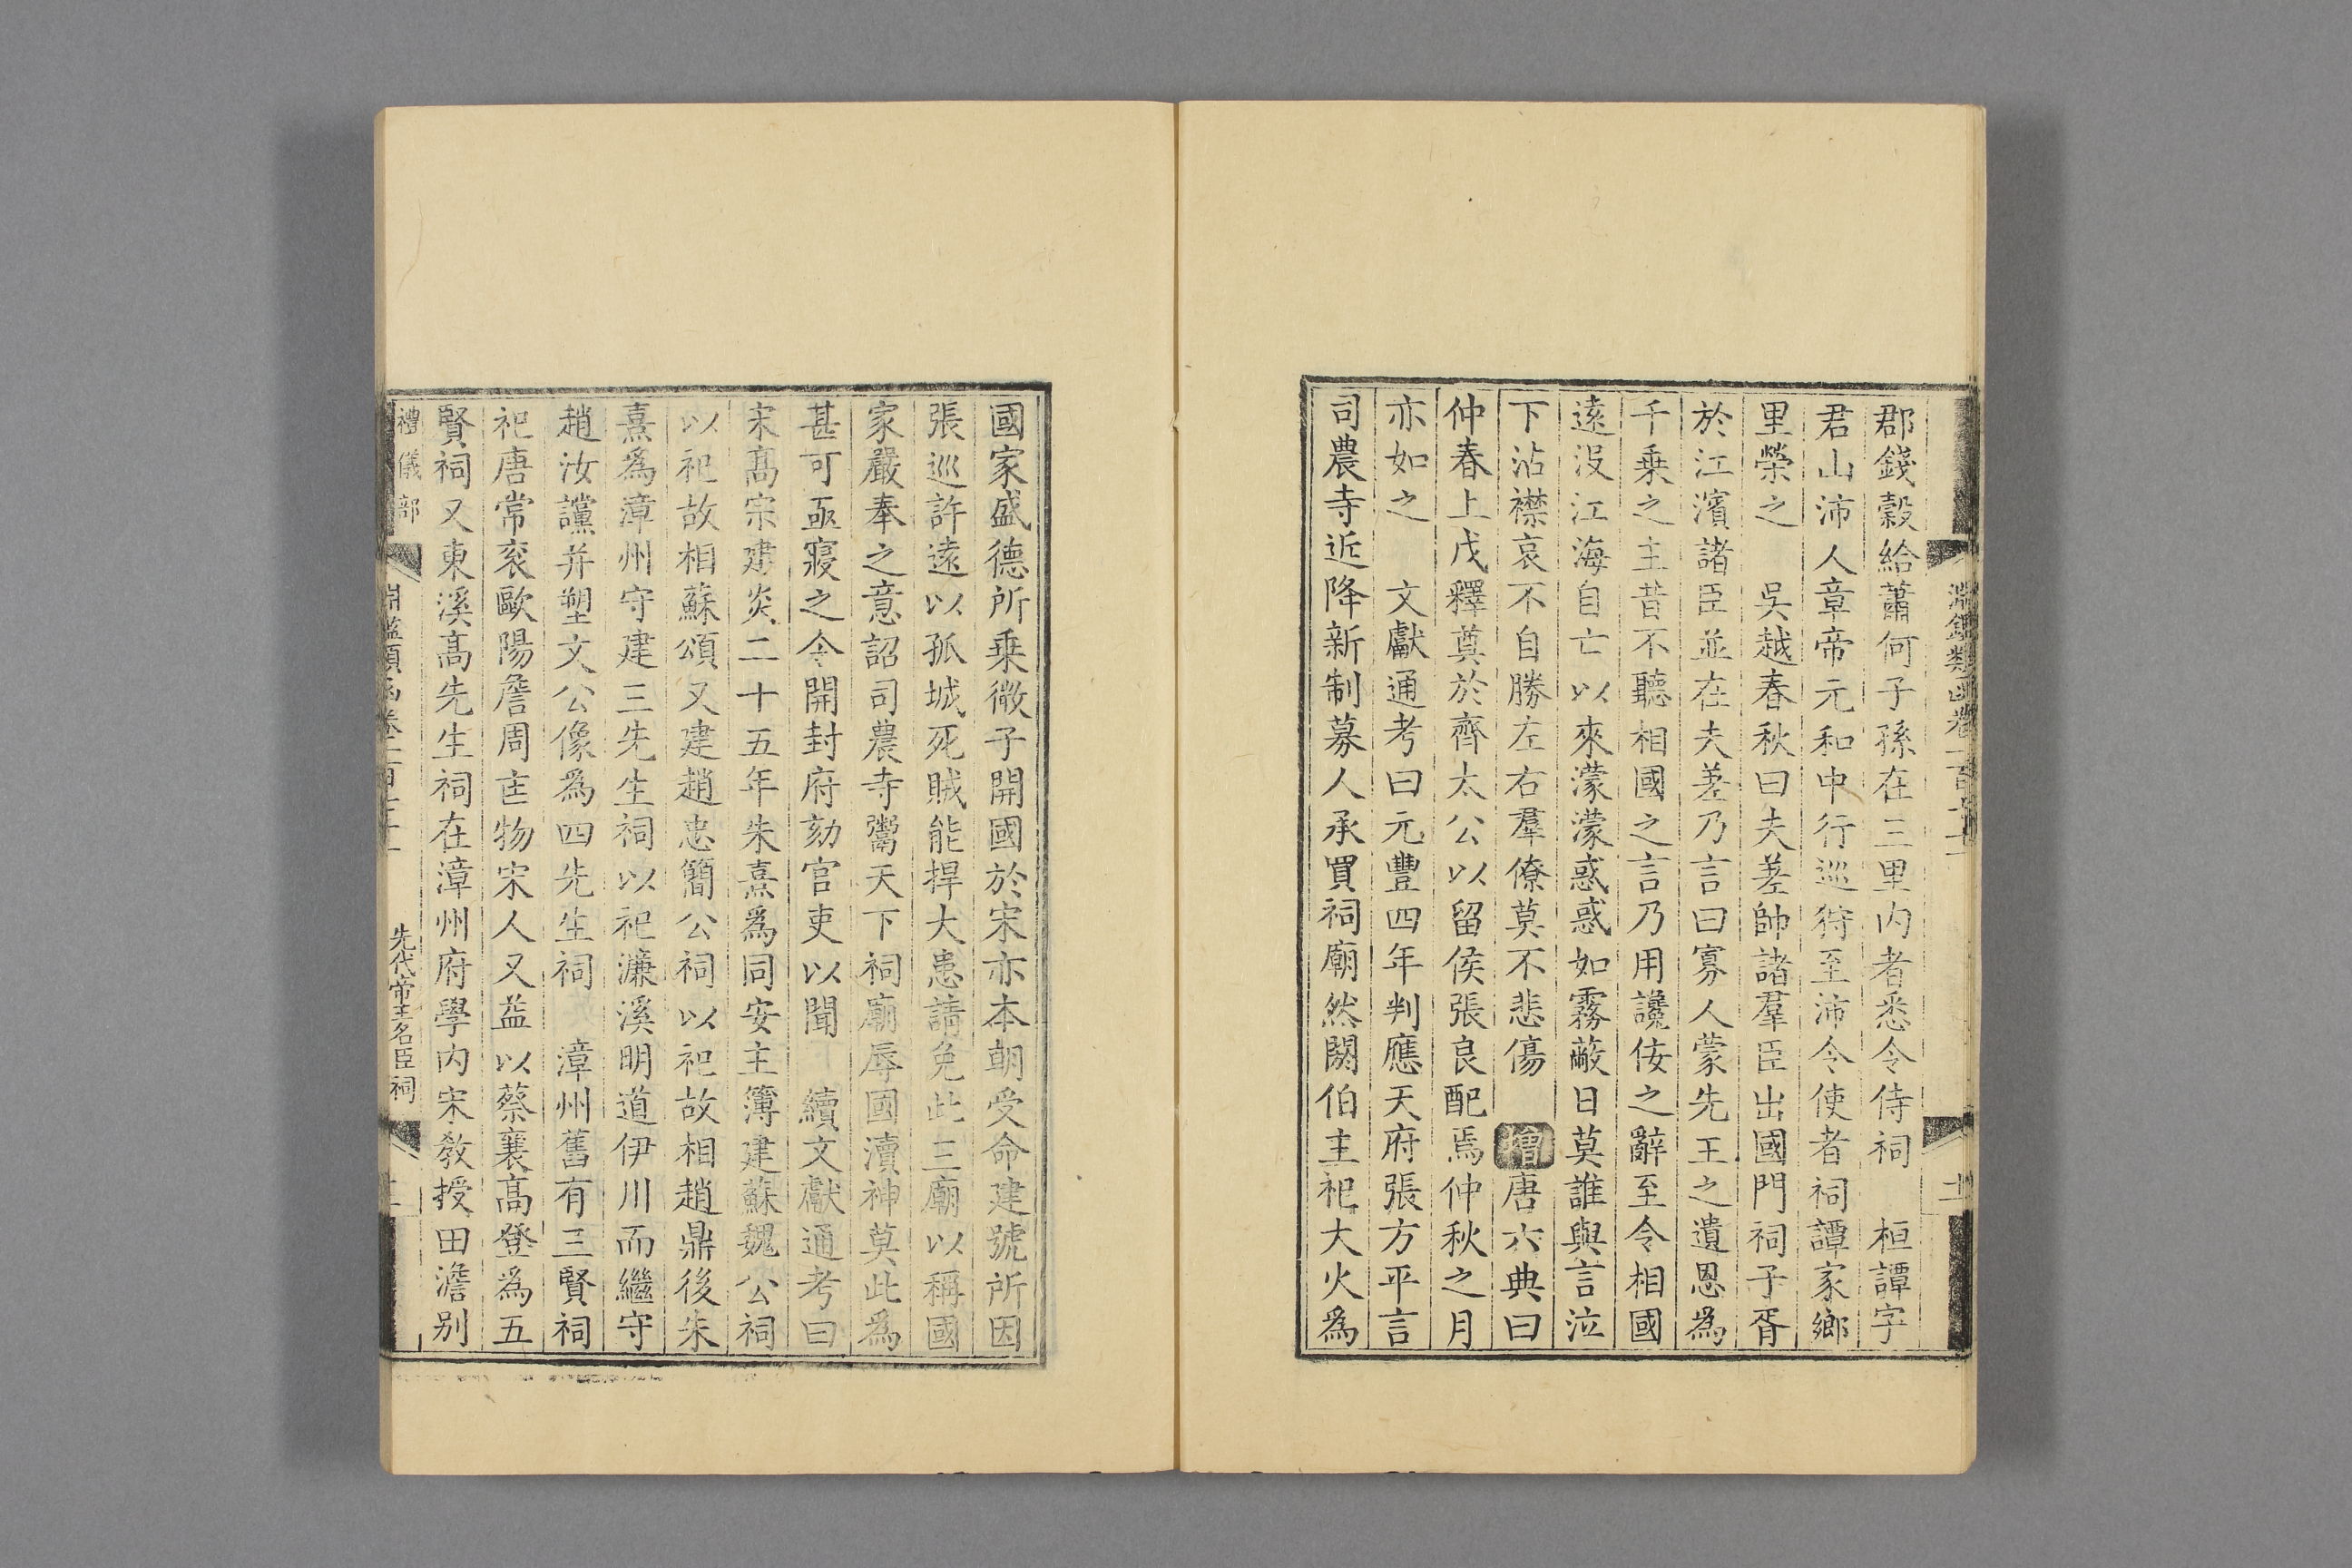 郡錢穀給蕭何子孫在三里内者悉令侍祠　桓譚字
君山沛人章帝元和中行巡狩至沛令使者祠譚家鄉
里榮之　吳越春秋曰夫差帥諸羣臣出國門祠子胥
於江濱諸臣並在夫差乃言曰寡人蒙先王之遺恩爲
千乗之主昔不聽相國之言乃用讒佞之辭至令相國
逺没江海自亡以來濛濛惑惑如霧蔽日莫誰與言泣
下沾襟哀不自勝左右羣僚莫不悲傷　增唐六典曰
仲春上戊釋奠於齊太公以留侯張良配焉仲秋之月
亦如之　文獻通考曰元豐四年判應天府張方平言
司農寺近降新制募人承買祠廟然閼伯主祀大火爲
國家盛德所乗微子開國於宋亦本朝受命建號所因
張巡許逺以孤城死賊能捍大患請免此三廟以稱國
家嚴奉之意詔司農寺鬻天下祠廟辱國瀆神莫此爲
甚可亟寢之令開封府劾官吏以聞　續文獻通考曰
宋髙宗建炎二十五年朱熹爲同安主簿建蘇魏公祠
以祀故相蘇頌又建趙忠簡公祠以祀故相趙鼎後朱
熹爲漳州守建三先生祠以祀濂溪明道伊川而繼守
趙汝讜并塑文公像爲四先生祠　漳州舊有三賢祠
祀唐常袞歐陽詹周匡物宋人又益以蔡襄髙登爲五
賢祠又東溪髙先生祠在漳州府學内宋敎授田澹别
禮儀部
先代帝王名臣祠